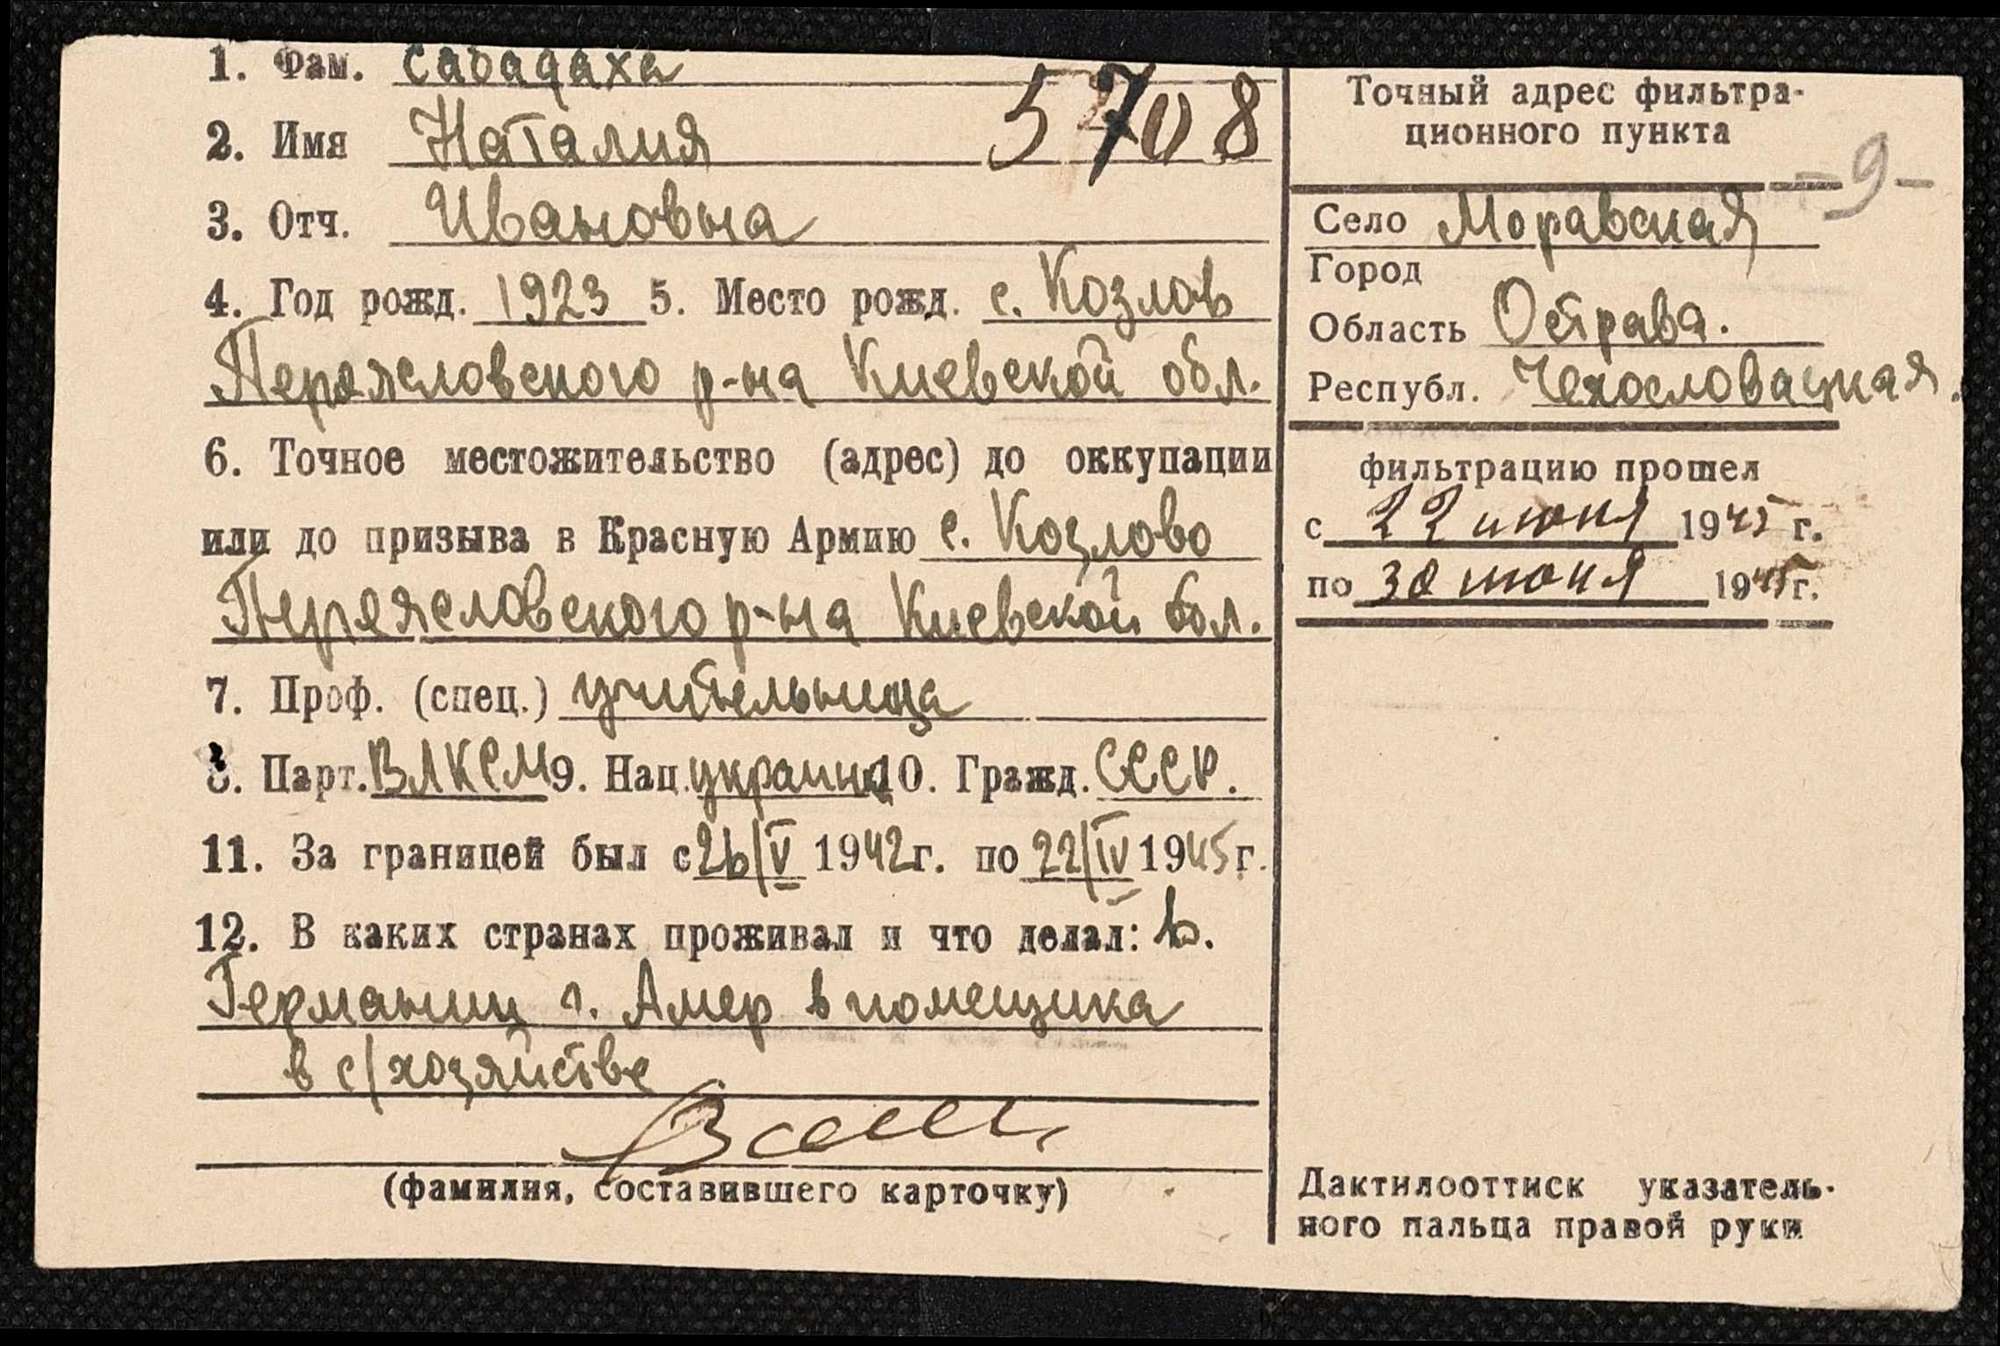 1. Фам. Сабадаха
2. Имя Наталия 5708
3. Отч. Ивановна
4. Год рожд. 1923 5. Место рожд. с. Козлов
Переясловского р-на Киевской обл.
6. Точное местожительство (адрес) до оккупации
или до призыва в Красную Армию с. Козлово
Переясловского р-на Киевской обл.
7. Проф. (спец.) учительница
8. Парт. ВЛКСМ 9. Нац. украинк. 10. Гражд. СССР.
11. За границей был с 26/V 1942 г. по 22/IV 1945 г.
12. В каких странах проживал и что делал: в.
Германии г. Амер в помещика
в с/хозяйстве
(фамилия, составившего карточку)
Точный адрес фильтра-
ционного пункта
-9-
Село Моравская
Город
Область Острава.
Республ. Чехословацкая.
фильтрацию прошел
с 22 июня 1945 г.
по 30 июня 1945 г.
Дактилооттиск указатель-
ного пальца правой руки